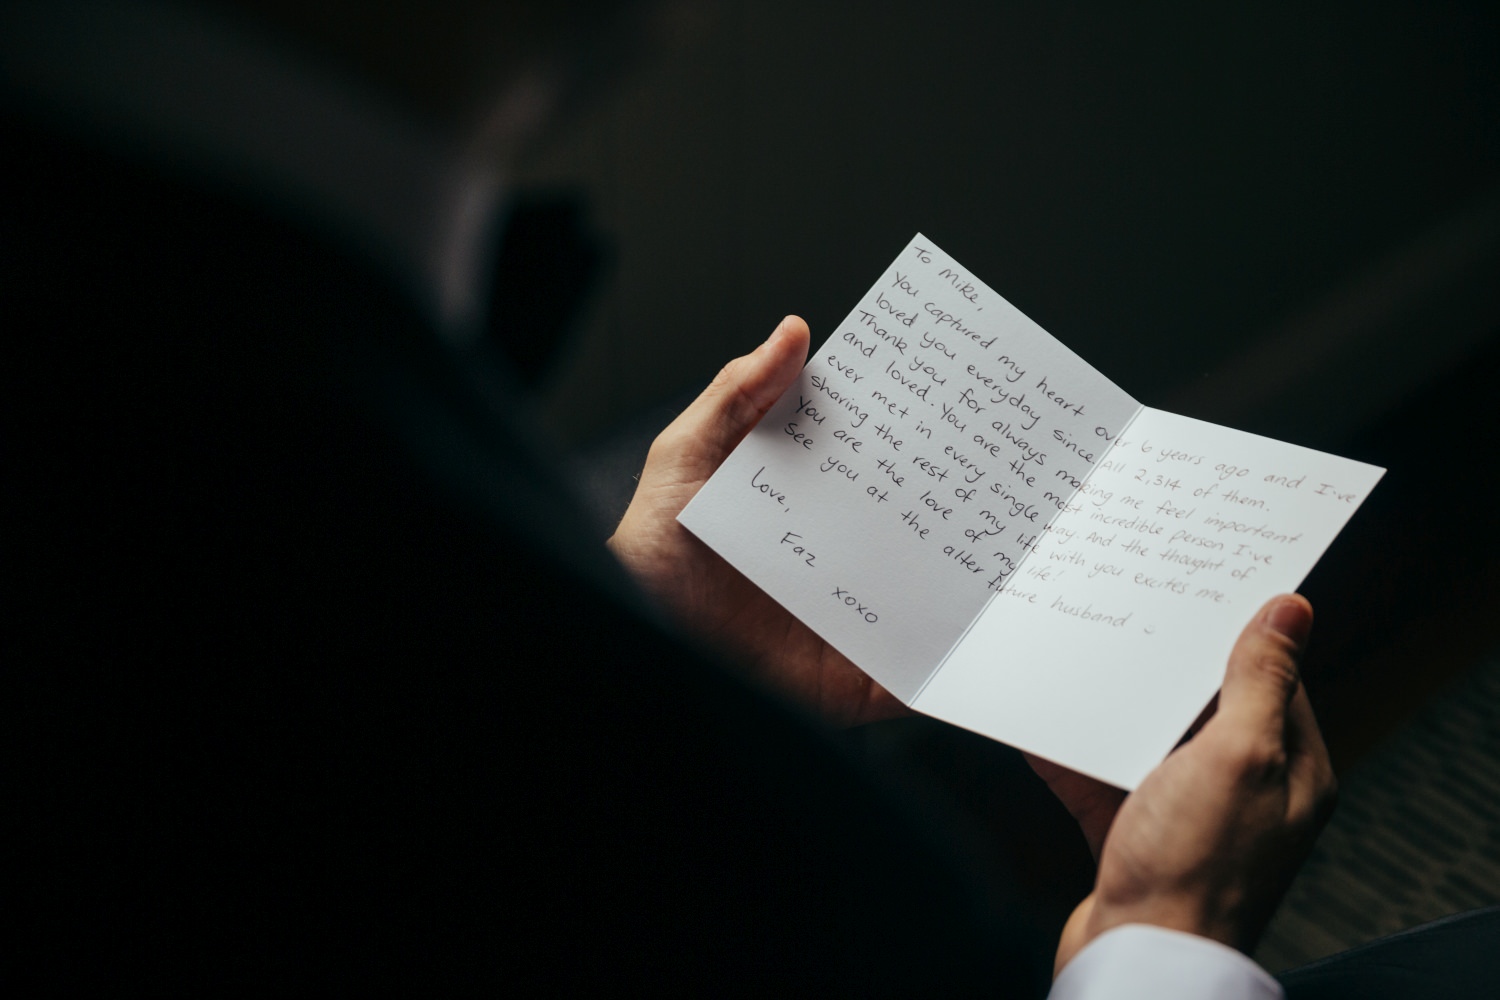 To Mike,
You captured my heart over 6 years ago and I've
loved you everyday since. All 2,314 of them.
Thank you for always making me feel important
and loved. You are the most incredible person I've
ever met in every single way. And the thought of
sharing the rest of my life with you excites me.
You are the love of my life!
See you at the alter future husband ☺
Love,
Faz
xoxo